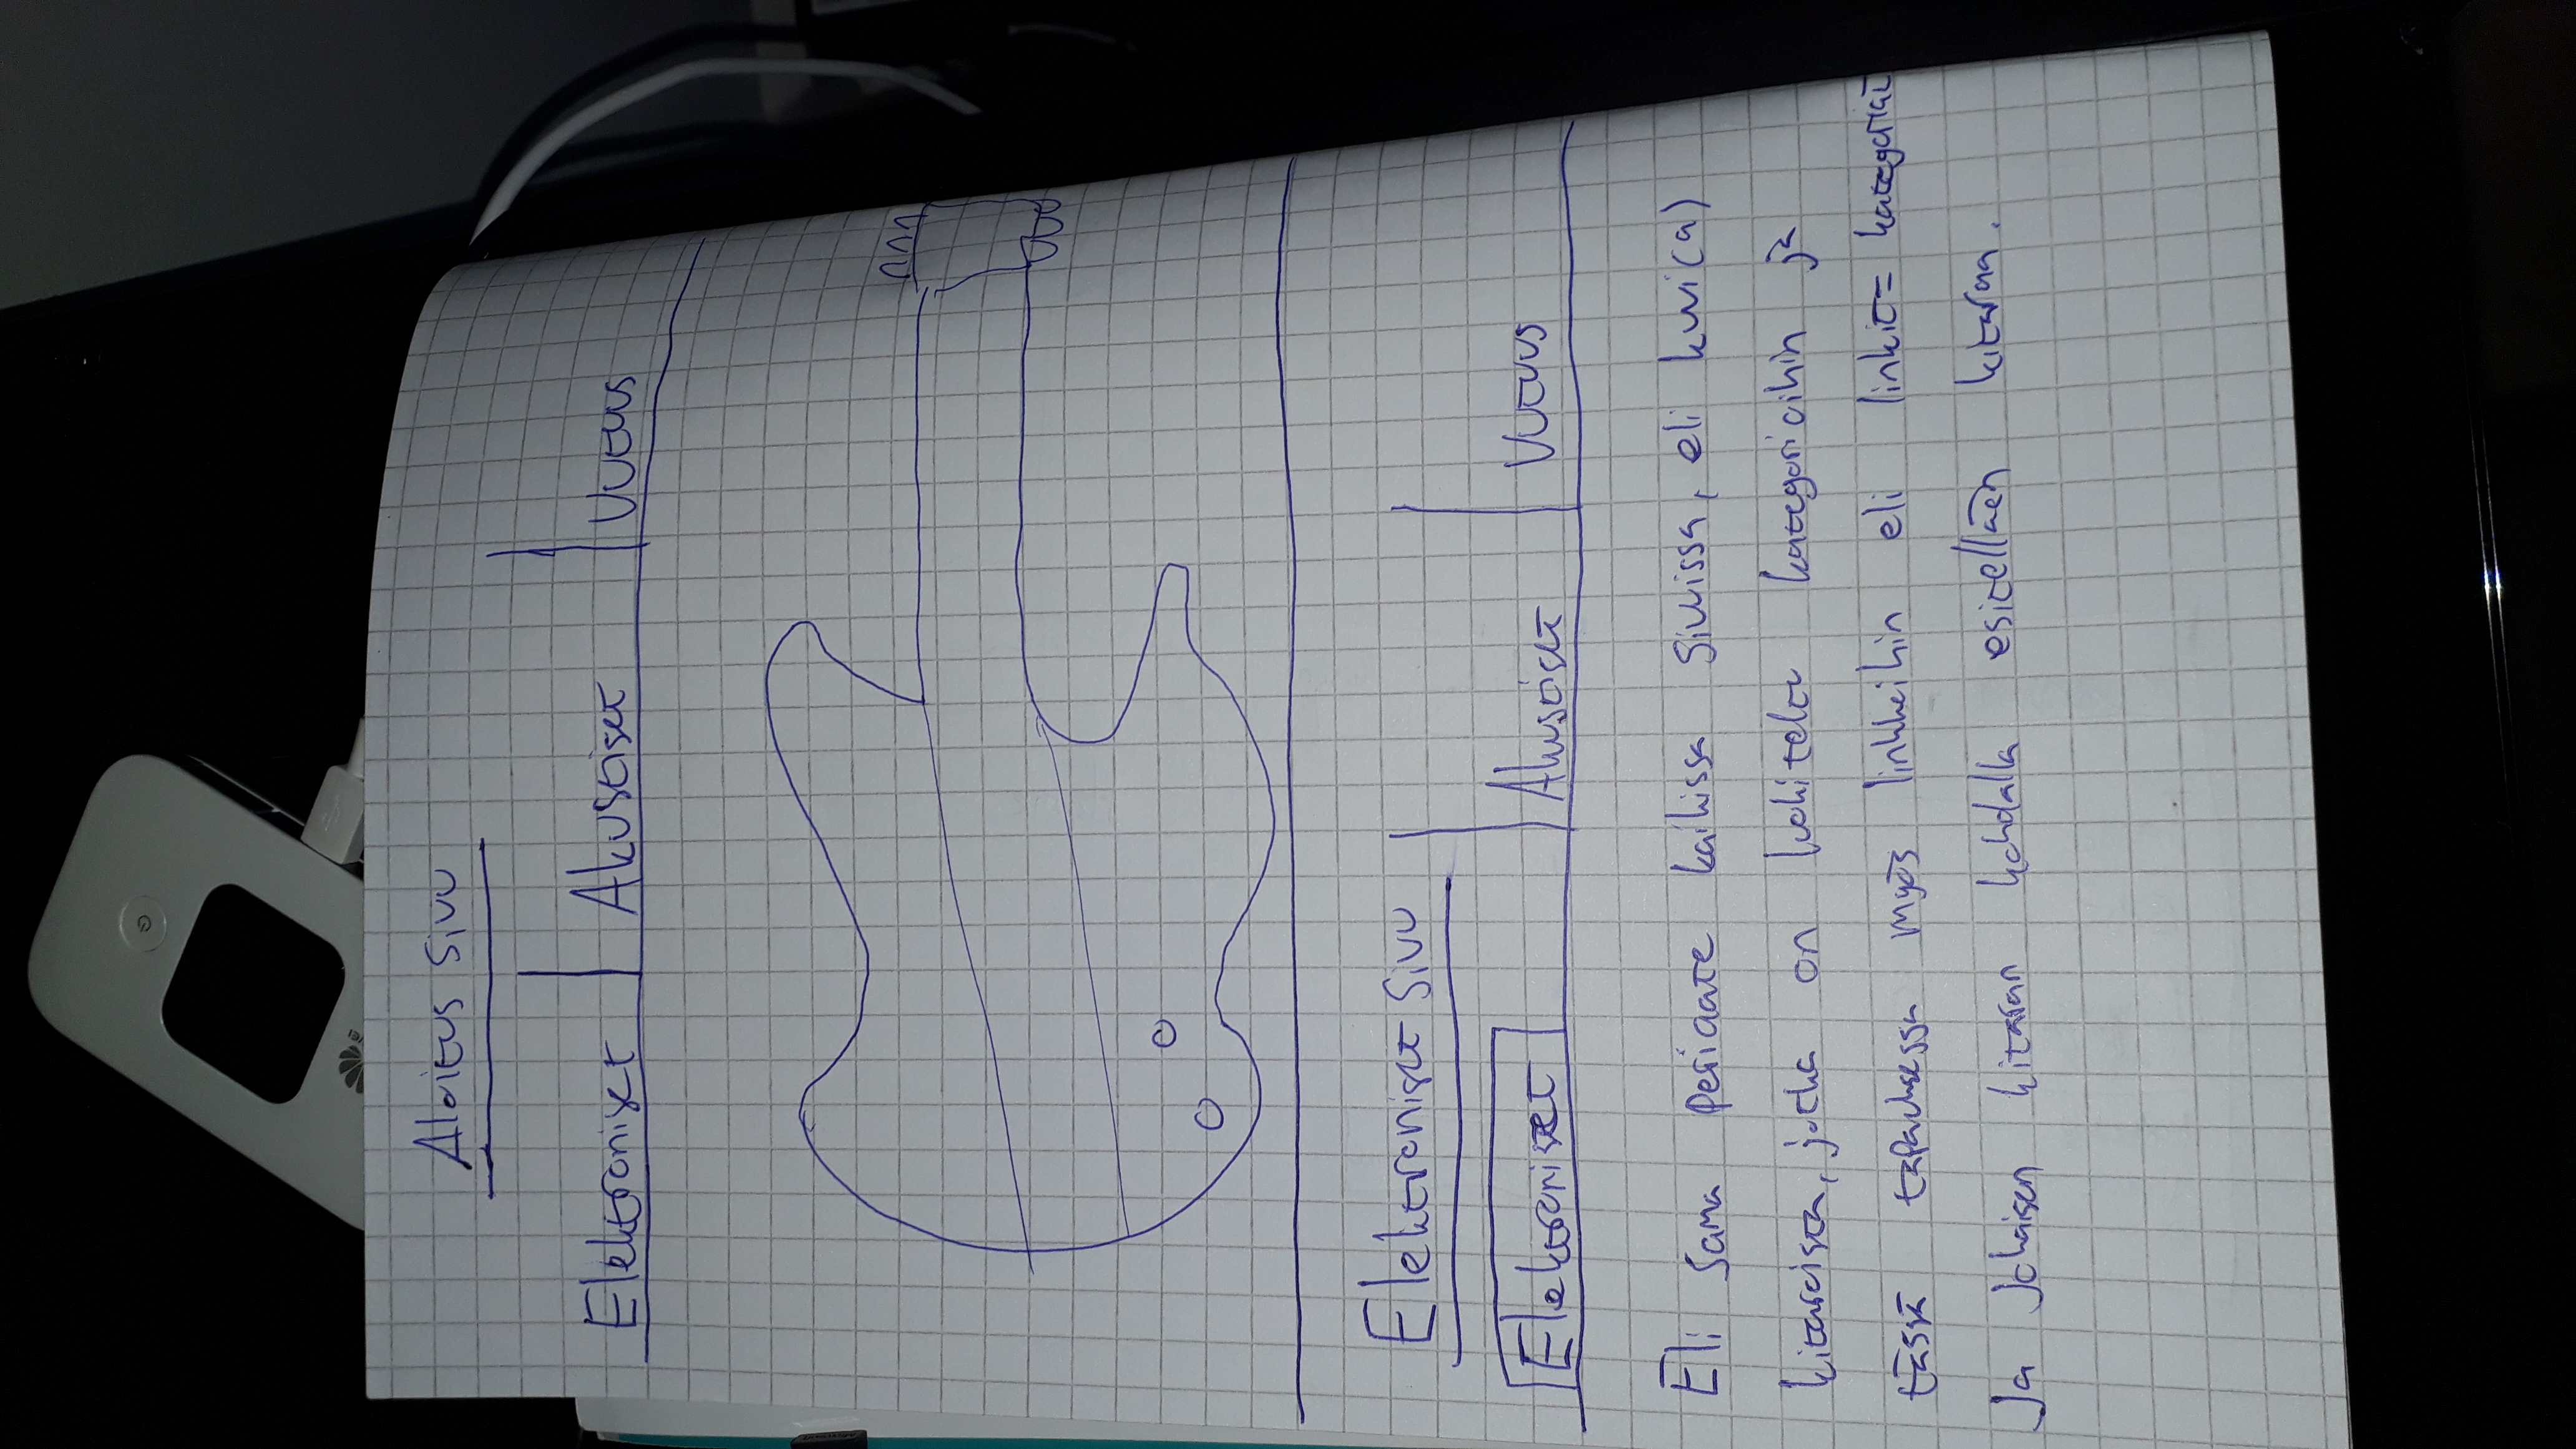 Aloitus sivu
Elektroniset Akustiset Uutuus
Elektroniset sivu
Elektroniset Akustiset Uutuus
Eli sama periaate kaikissa sivuissa, eli kuvi(a)
kitaroista, jotka on luokiteltu kategorioihin ja
tässä tapauksessa myös linkkeihin eli linkit= kategoriat
Ja jokaisen kitaran kohdalla esitellään kitaraa.